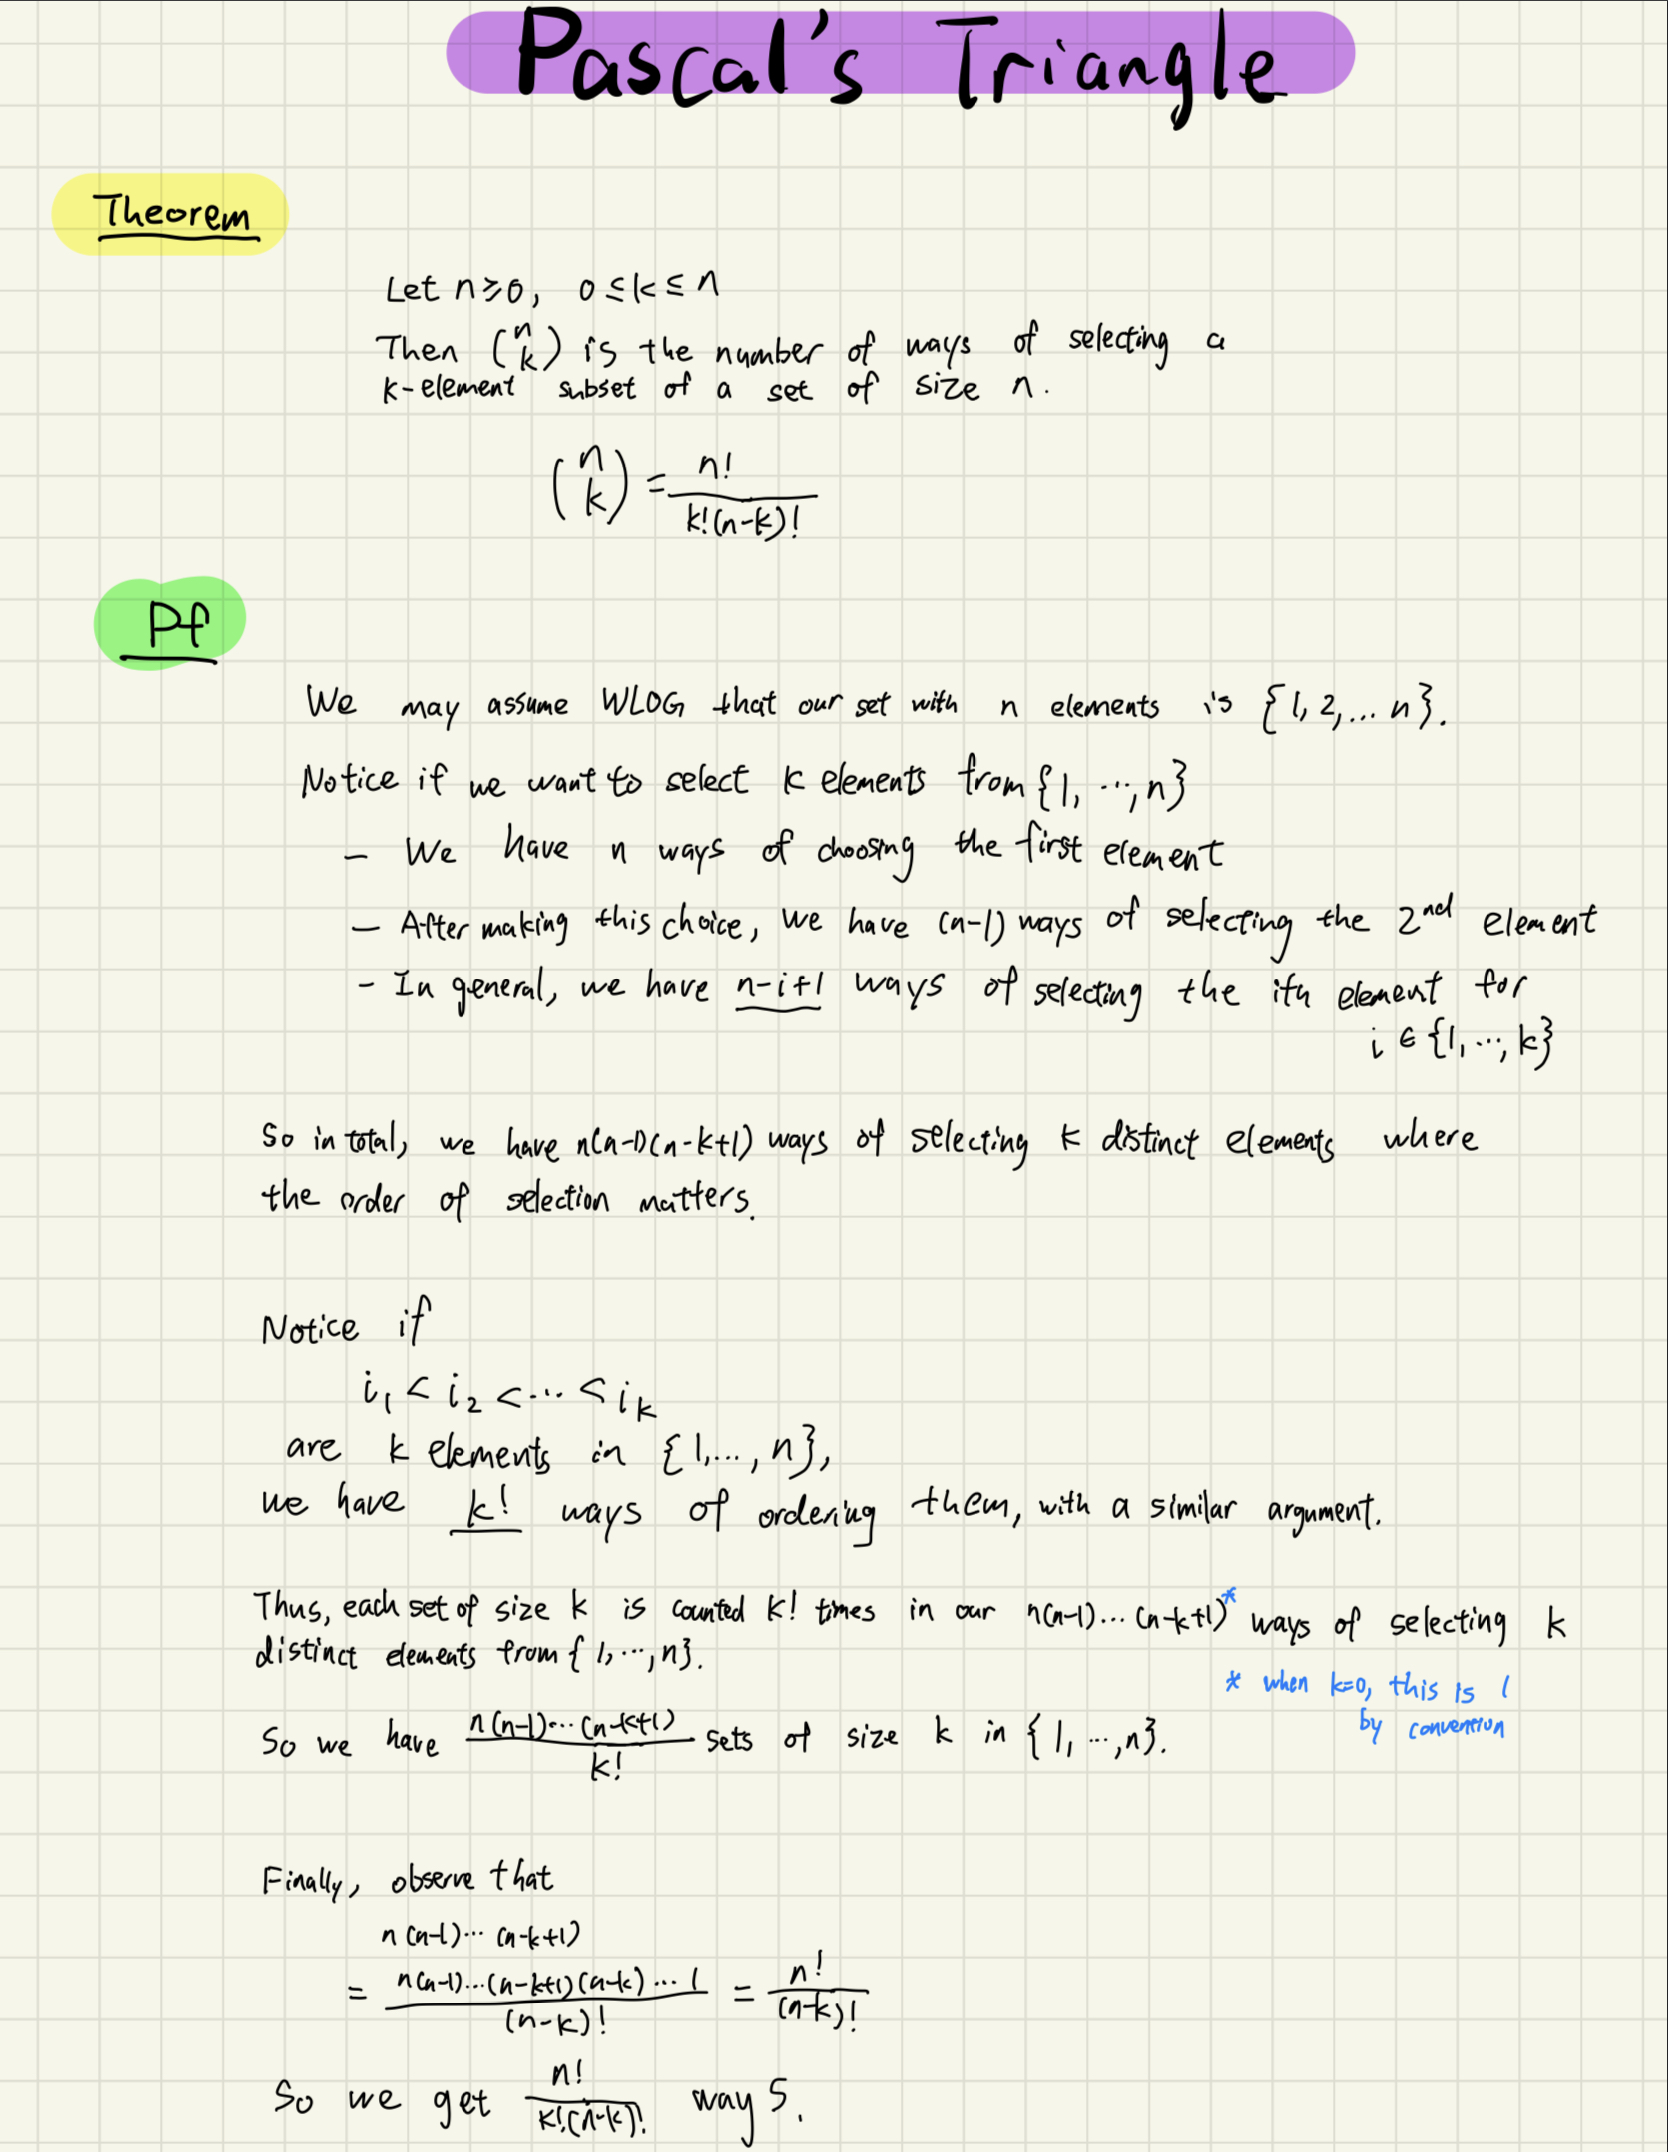 Pascal's Triangle
Theorem
Let n ≥ 0, 0 ≤ k ≤ n
Then (n k) is the number of ways of selecting a
k-element subset of a set of size n.
(n k) = n! / k!(n-k)!
Pf
We may assume WLOG that our set with n elements is {1, 2, ... n}.
Notice if we want to select k elements from {1, ..., n}
- We have n ways of choosing the first element
- After making this choice, we have (n-1) ways of selecting the 2nd element
- In general, we have n-i+1 ways of selecting the ith element for
i ∈ {1, ..., k}
So in total, we have n(n-1)(n-k+1) ways of selecting k distinct elements where
the order of selection matters.
Notice if
i₁ < i₂ < ... < iₖ
are k elements in {1, ..., n},
we have k! ways of ordering them, with a similar argument.
Thus, each set of size k is counted k! times in our n(n-1)...(n-k+1)* ways of selecting k
distinct elements from {1, ..., n}.
* when k=0, this is 1
by convention
So we have n(n-1)...(n-k+1) / k! sets of size k in {1, ..., n}.
Finally, observe that
n(n-1)...(n-k+1)
= n(n-1)...(n-k+1)(n-k)...1 / (n-k)! = n! / (n-k)!
So we get n! / k!(n-k)! ways.